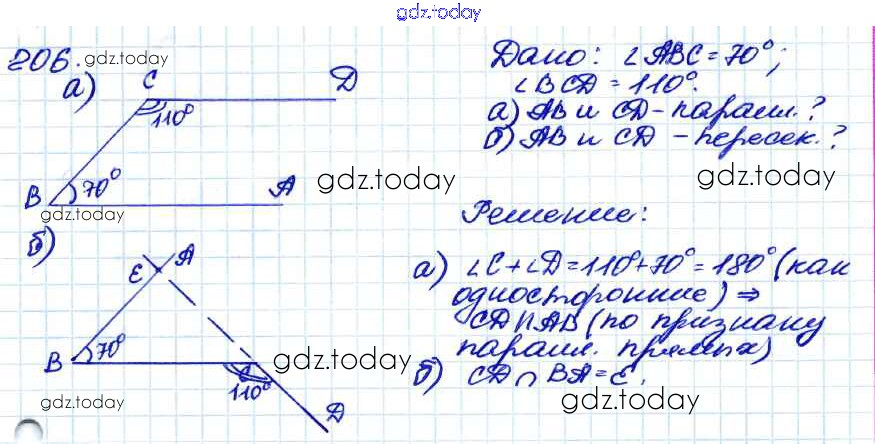 gdz.today
206. gdz.today
а)
C
D
110°
B
70°
A
gdz.today
Дано: ∠ABC = 70°;
∠BCD = 110°.
а) AB и CD - паралл.?
б) AB и CD - пересек.?
gdz.today
gdz.today
Решение:
а) ∠C + ∠D = 110° + 70° = 180° (как
односторонние) ⇒
CD || AB (по признаку
паралл. прямых)
б) CD ∩ BA = E.
gdz.today
б)
E
A
B
70°
110°
D
gdz.today
gdz.today